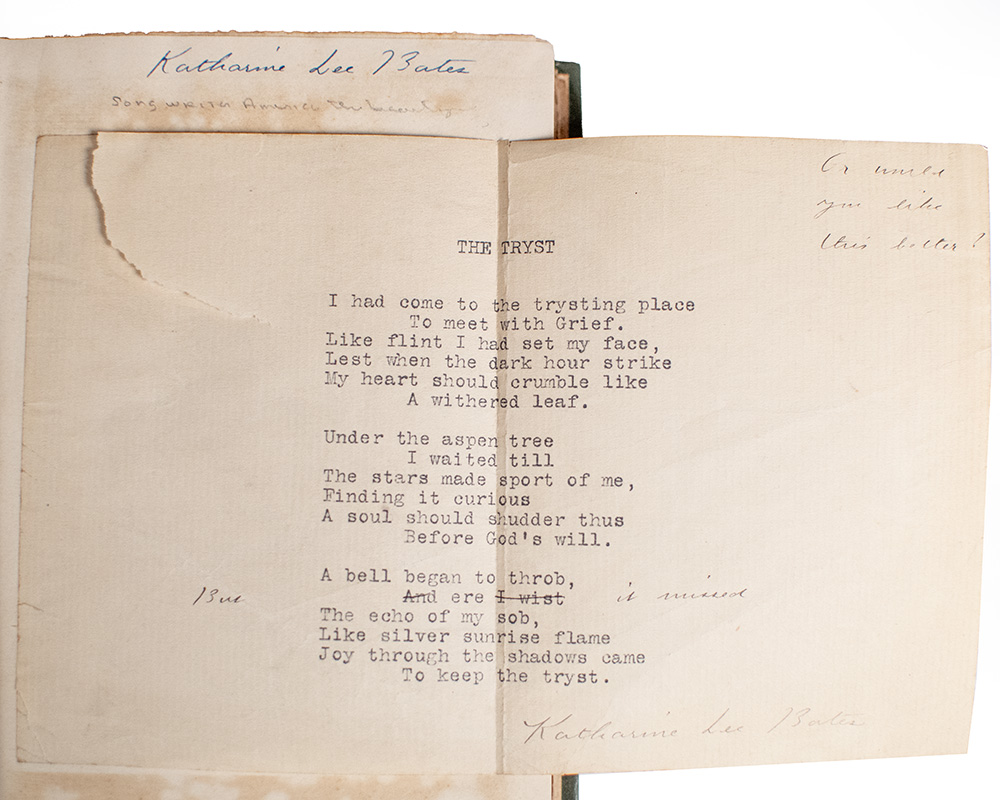 Katharine Lee Bates
Song writer America the beautiful
Or would
you like
this better?
THE TRYST
I had come to the trysting place
To meet with Grief.
Like flint I had set my face,
Lest when the dark hour strike
My heart should crumble like
A withered leaf.
Under the aspen tree
I waited till
The stars made sport of me,
Finding it curious
A soul should shudder thus
Before God's will.
A bell began to throb,
But And ere I wist it missed
The echo of my sob,
Like silver sunrise flame
Joy through the shadows came
To keep the tryst.
Katharine Lee Bates